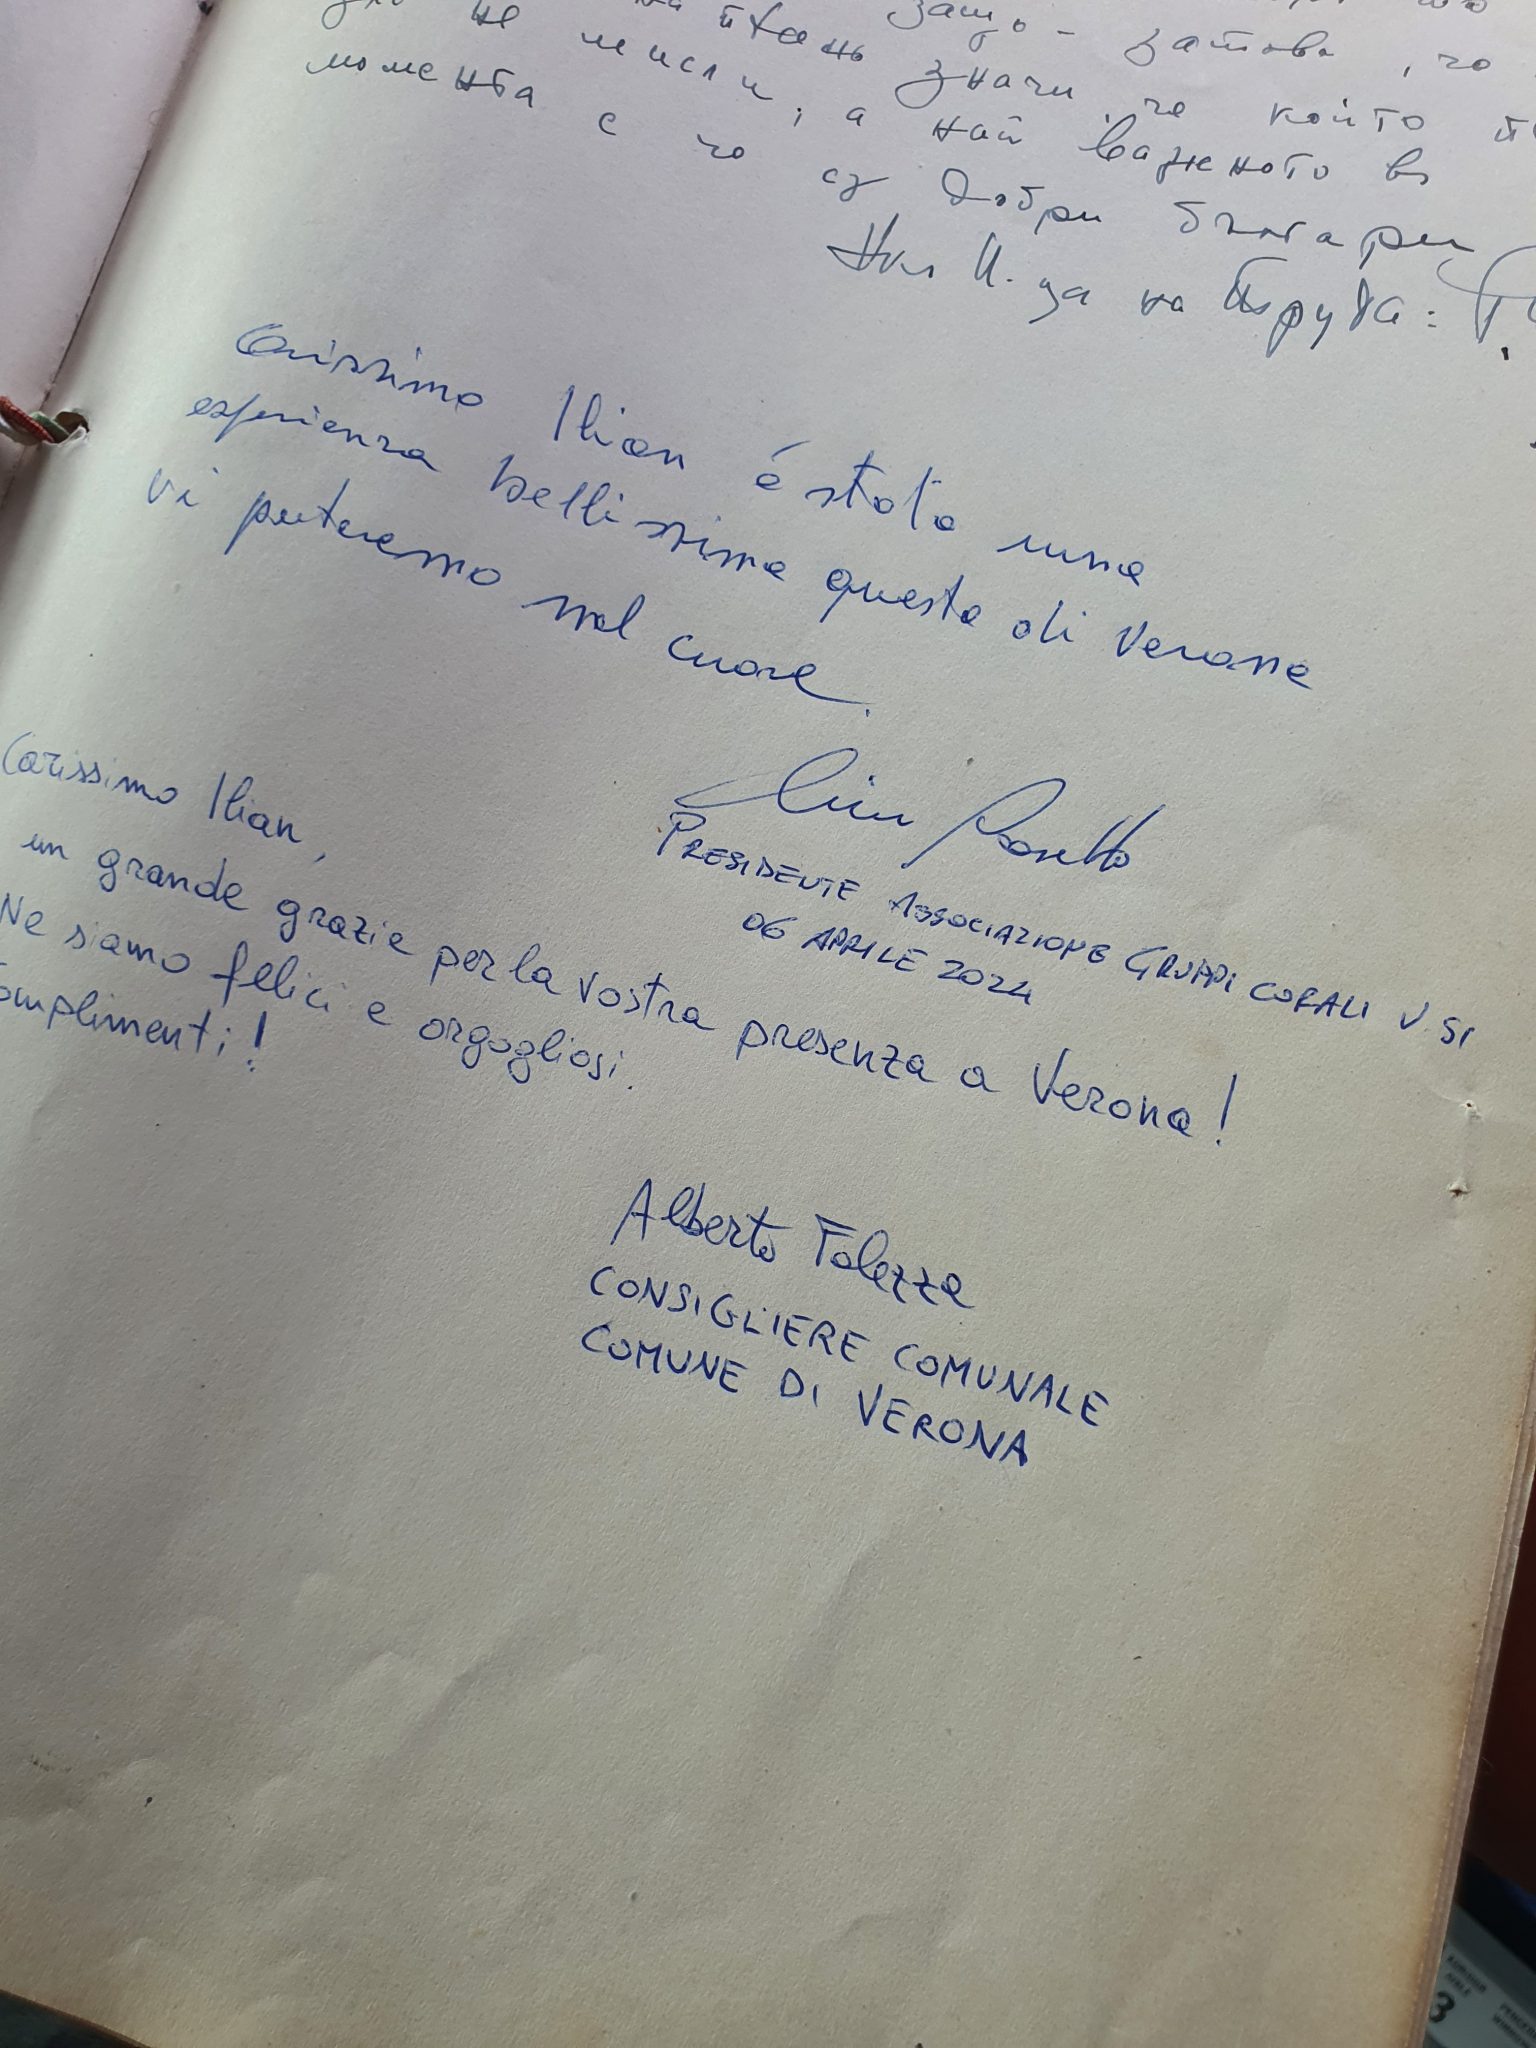 защо - затова, че
не мисли, а най важното в
значи, че който
момента е че са добри българи
Carissimo Ilian é stata una
esperienza bellissima questa di Verona
vi porteremo nel cuore.
PRESIDENTE ASSOCIAZIONE GRUPPI CORALI V.SI
06 APRILE 2024
Carissimo Ilian,
un grande grazie per la vostra presenza a Verona!
Ne siamo felici e orgogliosi.
Complimenti!
Alberto Falezza
CONSIGLIERE COMUNALE
COMUNE DI VERONA
3